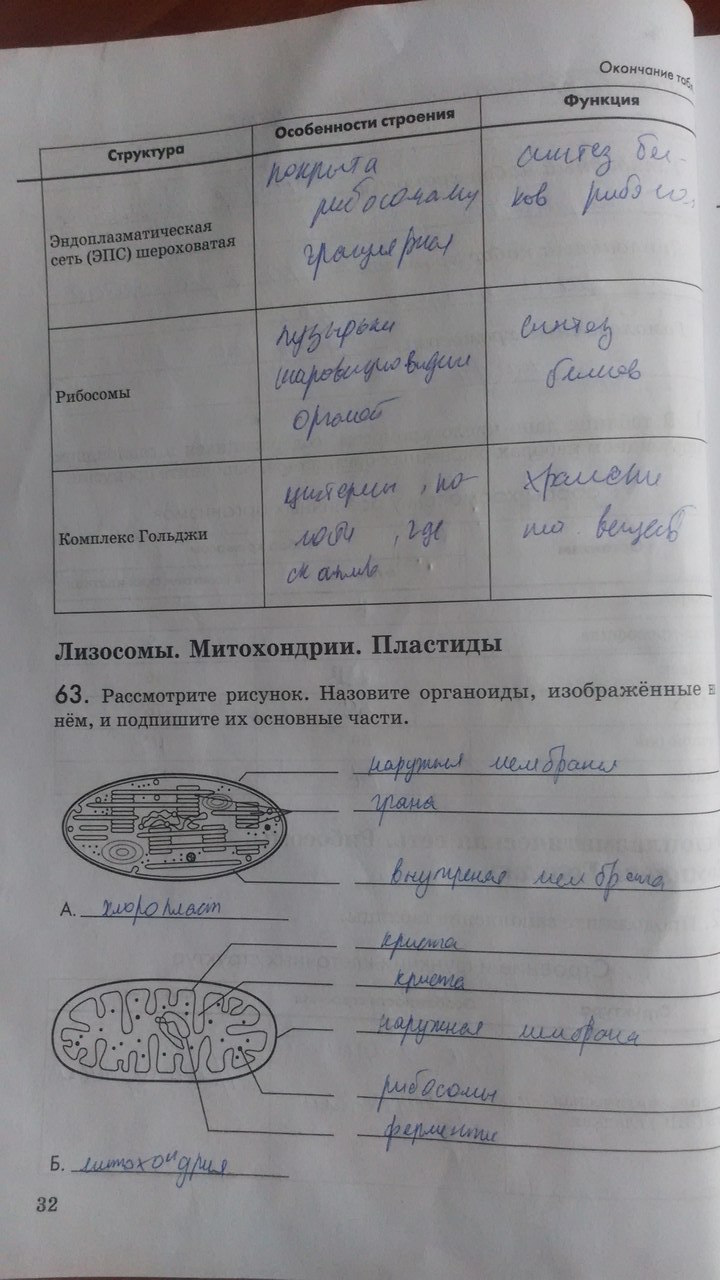 Окончание таб
Структура
Особенности строения
Функция
Эндоплазматическая
сеть (ЭПС) шероховатая
покрыта
рибосомами
гранулярная
синтез бел-
ков рибосо
Рибосомы
пузырьки
органоб
синтез
белков
Комплекс Гольджи
цистерны, по-
лости, где
хранени
веществ
Лизосомы. Митохондрии. Пластиды
63. Рассмотрите рисунок. Назовите органоиды, изображённые н
нём, и подпишите их основные части.
наружная мембрана
грана
внутреная мембрана
А. хлоропласт
криста
криста
наружная мембрана
рибосомы
ферменты
Б. митохондрия
32